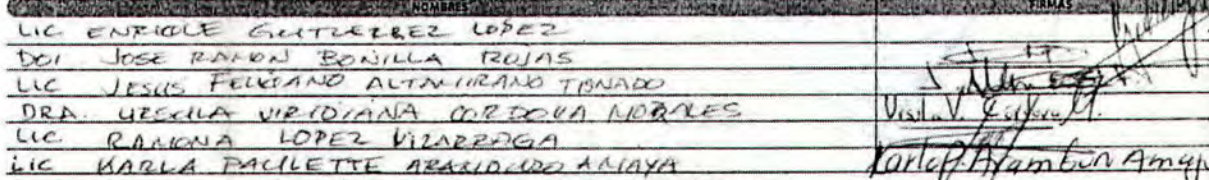 NOMBRES FIRMAS
LIC ENRIQUE GUTIERREZ LOPEZ
DOI JOSE RAMON BONILLA ROJAS
LIC JESUS FELICIANO ALTAMIRANO TIRADO
DRA. URSULA VIRIDIANA CORDOVA MORALES
LIC RAMONA LOPEZ VIZARRAGA
LIC KARLA PAULETTE ARAMBURO AMAYA Karla P. Aramburo Amaya